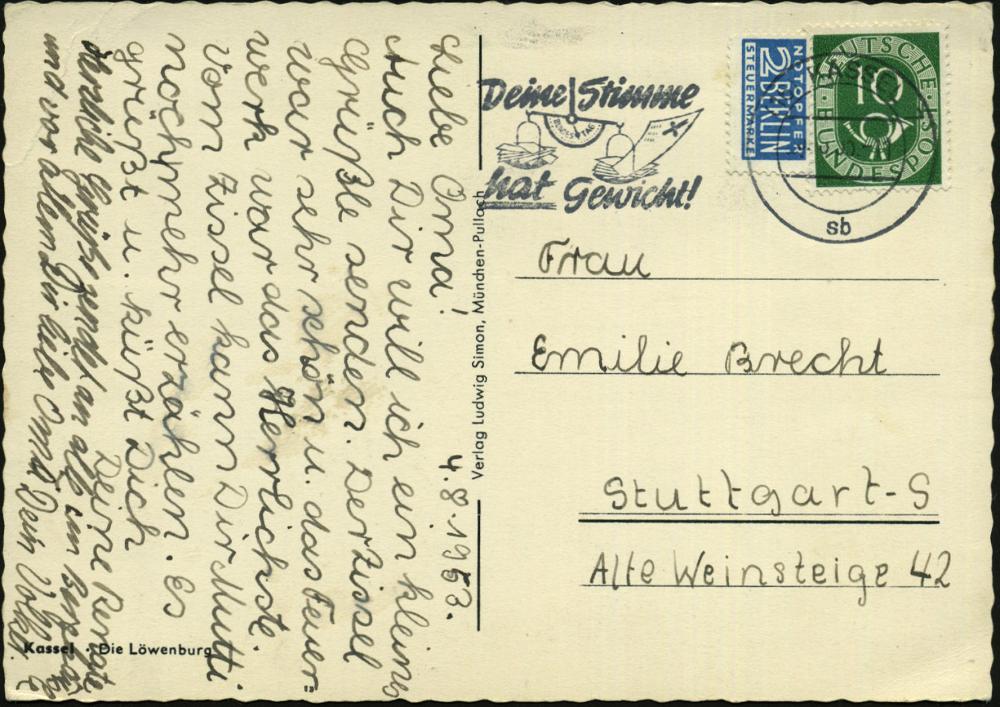 4.8.1953.
Liebe Oma!
Auch Dir will ich ein kleines
Grüßle senden. Der Zissel
war sehr schön u. das Feuer=
werk war das Herrlichste.
Vom Zissel kann Dir Mutti
noch mehr erzählen. Es
grüßt u. küßt Dich
Deine Renate
Herzliche Grüße an alle im
und vor allem Dir liebe Oma Dein Volker.
Kassel · Die Löwenburg
Verlag Ludwig Simon, München-Pullach
Deine Stimme
BUNDESTAG
hat Gewicht!
NOTOPFER
2 BERLIN
STEUERMARKE
DEUTSCHE
10
BUNDESPOST
KASSEL
sb
Frau
Emilie Brecht
Stuttgart-S
Alte Weinsteige 42